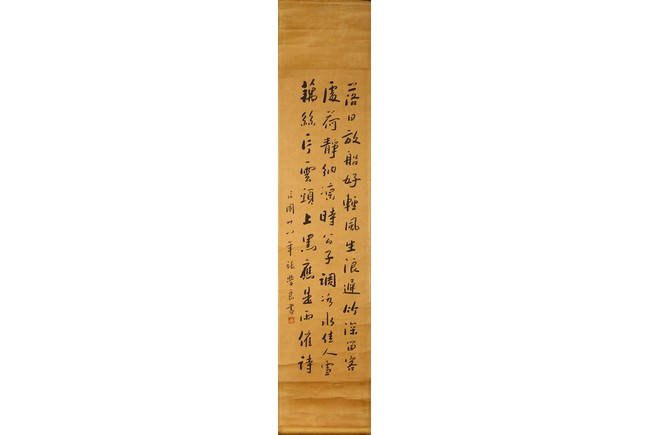 落日放船好輕風生浪遲竹深留客
處荷靜納涼時公子調冰水佳人雪
藕絲片雲頭上黑應是雨催詩
民國八年張學良書